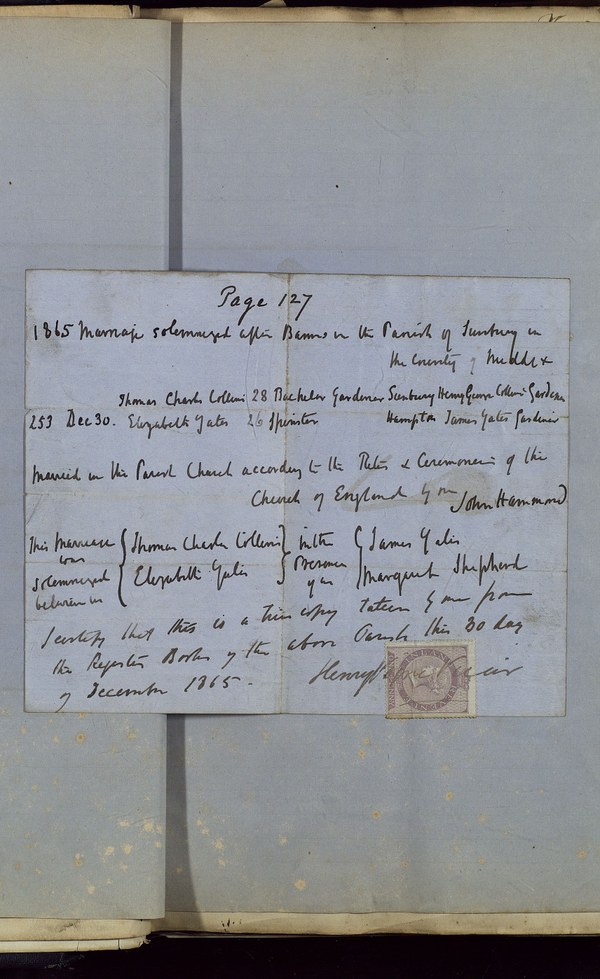 Page 127
1865 Marriage solemnized after Banns in the Parish of Sunbury in
the County of Middx
Thomas Charles Collins 28 Bachelor Gardener Sunbury Henry George Collins Gardener
253 Dec 30. Elizabeth Yates 26 Spinster Hampton James Yates Gardener
Married in the Parish Church according to the Rites & Ceremonies of the
Church of England by me John Hammond
This Marriage { Thomas Charles Collins } in the { James Yates
was
solemnized { Elizabeth Yates } Presence of us { Margaret Shepherd
between us
I certify that this is a true copy taken by me from
the Register Books of the above Parish this 30 day
of December 1865. Henry